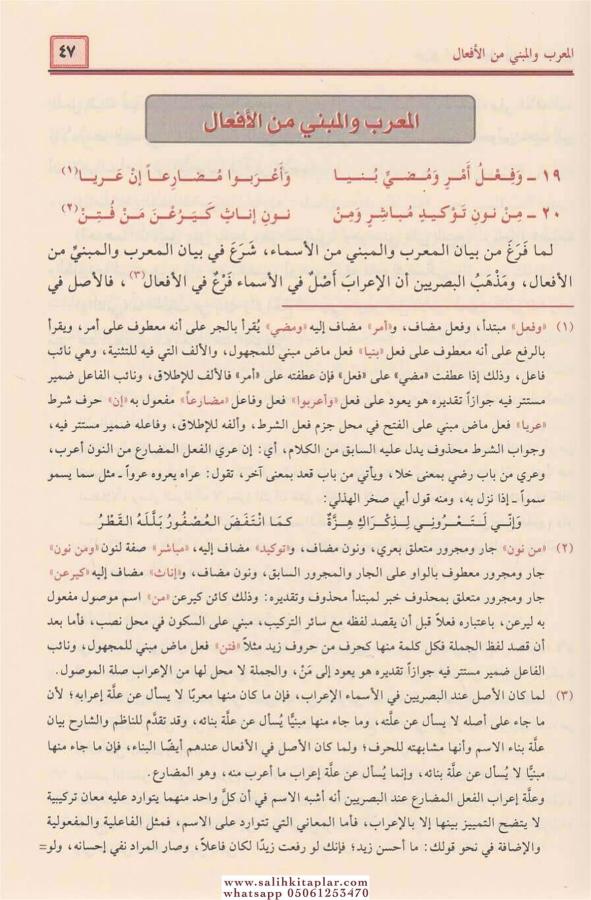 المعرب والمبني من الأفعال
٤٧
المعرب والمبني من الأفعال
١٩ ـ وَفِعْلُ أَمْرٍ وَمُضِيٍّ بُنِيا وَأَعْرَبوا مُضَارِعاً إنْ عَرِيا(١)
٢٠ ـ مِنْ نونِ تَوْكيدٍ مُباشِرٍ وَمِنْ نونِ إناثٍ كَيَرُعْنَ مَنْ فُتِنْ(٢)
لما فَرَغَ من بيان المعرب والمبني من الأسماء، شَرَعَ في بيان المعرب والمبنيّ من
الأفعال، ومَذْهَبُ البصريين أن الإعرابَ أَصْلٌ في الأسماء فَرْعٌ في الأفعال(٣)، فالأصل في
(١) «وفعل» مبتدأ، وفعل مضاف، و«أمر» مضاف إليه «ومضي» يُقرأ بالجر على أنه معطوف على أمر، ويقرأ
بالرفع على أنه معطوف على فعل «بنيا» فعل ماض مبني للمجهول، والألف التي فيه للتثنية، وهي نائب
فاعل، وذلك إذا عطفت «مضي» على «فعل» فإن عطفته على «أمر» فالألف للإطلاق، ونائب الفاعل ضمير
مستتر فيه جوازاً تقديره هو يعود على فعل «وأعربوا» فعل وفاعل «مضارعاً» مفعول به «إن» حرف شرط
«عريا» فعل ماض مبني على الفتح في محل جزم فعل الشرط، وألفه للإطلاق، وفاعله ضمير مستتر فيه،
وجواب الشرط محذوف يدل عليه السابق من الكلام، أي: إن عري الفعل المضارع من النون أعرب،
وعري من باب رضي بمعنى خلا، ويأتي من باب قعد بمعنى آخر، تقول: عراه يعروه عرواً ـ مثل سما يسمو
سمواً ـ إذا نزل به، ومنه قول أبي صخر الهذلي:
وَإنِّي لَتَعْرُوني لِذِكْرَاكِ هِزَّةٌ كمَا انْتَفَضَ العُصْفُورُ بَلَّلَهُ القَطْرُ
(٢) «من نون» جار ومجرور متعلق بعري، ونون مضاف، و«توكيد» مضاف إليه، «مباشر» صفة لنون «ومن نون»
جار ومجرور معطوف بالواو على الجار والمجرور السابق، ونون مضاف، و«إناث» مضاف إليه «كيرعن»
جار ومجرور متعلق بمحذوف خبر لمبتدأ محذوف وتقديره: وذلك كائن كيرعن «من» اسم موصول مفعول
به ليرعن، باعتباره فعلاً قبل أن يقصد لفظه مع سائر التركيب، مبني على السكون في محل نصب، فأما بعد
أن قصد لفظ الجملة فكل كلمة منها كحرف من حروف زيد مثلاً «فتن» فعل ماض مبني للمجهول، ونائب
الفاعل ضمير مستتر فيه جوازاً تقديره هو يعود إلى مَنْ، والجملة لا محل لها من الإعراب صلة الموصول.
(٣) لما كان الأصل عند البصريين في الأسماء الإعراب، فإن ما كان منها معربًا لا يسأل عن علَّة إعرابه؛ لأن
ما جاء على أصله لا يسأل عن علَّته، وما جاء منها مبنيًّا يُسأل عن علَّة بنائه، وقد تقدَّم للناظم والشارح بيان
علَّة بناء الاسم وأنها مشابهته للحرف؛ ولما كان الأصل في الأفعال عندهم أيضًا البناء، فإن ما جاء منها
مبنيًّا لا يُسأل عن علَّة بنائه، وإنما يُسأل عن علَّة إعراب ما أعرب منه، وهو المضارع.
وعلَّة إعراب الفعل المضارع عند البصريين أنه أشبه الاسم في أن كلَّ واحد منهما يتوارد عليه معان تركيبية
لا يتضح التمييز بينها إلا بالإعراب، فأما المعاني التي تتوارد على الاسم، فمثل الفاعلية والمفعولية
والإضافة في نحو قولك: ما أحسن زيد؛ فإنك لو رفعت زيدًا لكان فاعلاً، وصار المراد نفي إحسانه، ولو=
www.salihkitaplar.com
whatsapp 05061253470